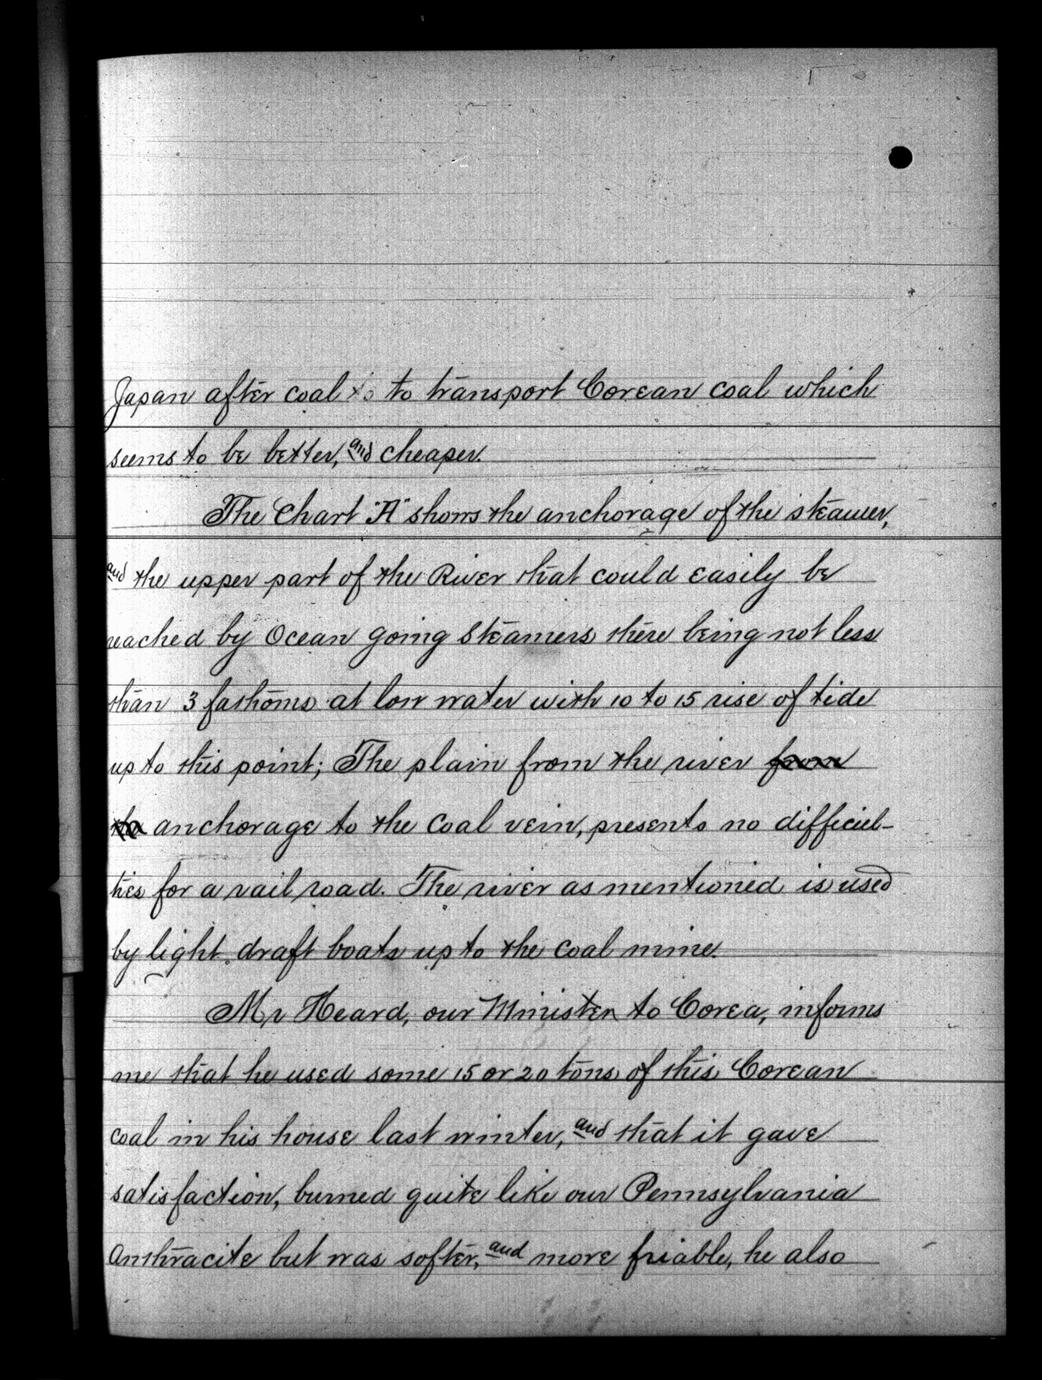 Japan after coal to to transport Corean coal which
seems to be better, and cheaper.
The Chart "A" shows the anchorage of the steamer,
and the upper part of the River that could easily be
reached by Ocean going Steamers there being not less
than 3 fathoms at low water with 10 to 15 rise of tide
up to this point; The plain from the river from
the anchorage to the coal vein, presents no difficul-
ties for a rail road. The river as mentioned is used
by light draft boats up to the coal mine.
Mr Heard, our Minister to Corea, informs
me that he used some 15 or 20 tons of this Corean
coal in his house last winter, and that it gave
satisfaction, burned quite like our Pennsylvania
Anthracite but was softer, and more friable, he also